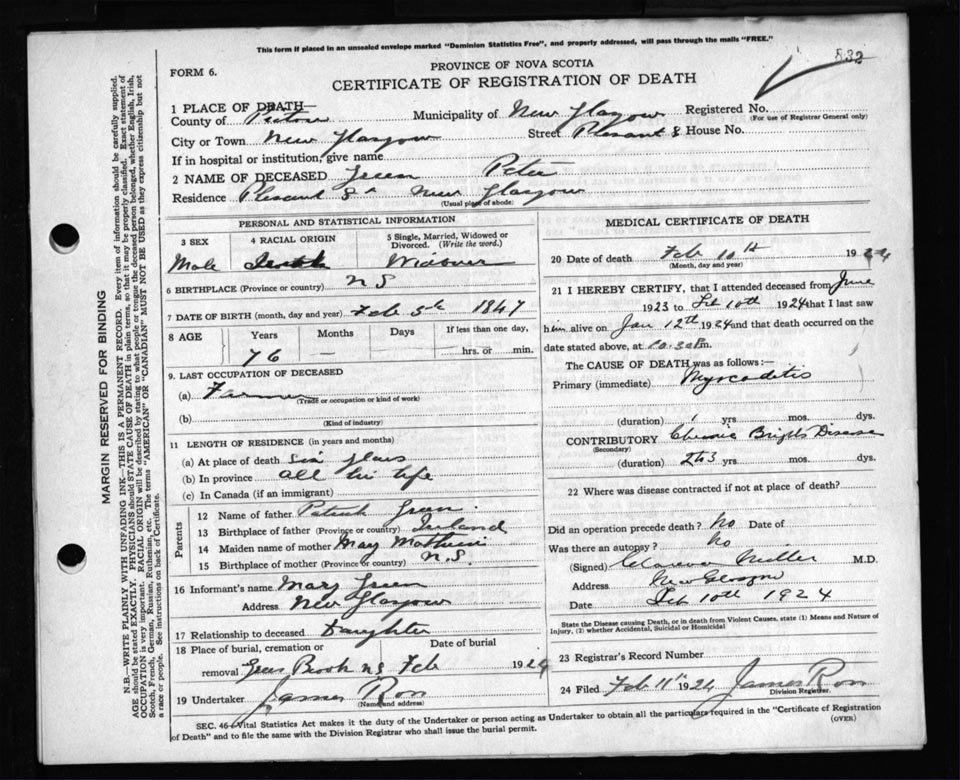 This form if placed in an unsealed envelope marked "Dominion Statistics Free", and properly addressed, will pass through the mails "FREE."
832
PROVINCE OF NOVA SCOTIA
FORM 6.
CERTIFICATE OF REGISTRATION OF DEATH
1 PLACE OF DEATH
County of Pictou Municipality of New Glasgow Registered No.
(For use of Registrar General only)
City or Town New Glasgow Street Plesant S House No.
If in hospital or institution, give name
2 NAME OF DECEASED Green Peter
Residence Plesant St New Glasgow
(Usual place of abode)
PERSONAL AND STATISTICAL INFORMATION
3 SEX 4 RACIAL ORIGIN 5 Single, Married, Widowed or Divorced. (Write the word.)
Male Widower
6 BIRTHPLACE (Province or country) N S
7 DATE OF BIRTH (month, day and year) Feb 5th 1847
8 AGE Years Months Days If less than one day,
76 — — hrs. or min.
9. LAST OCCUPATION OF DECEASED
(a) Farmer
(Trade or occupation or kind of work)
(b)
(Kind of industry)
11 LENGTH OF RESIDENCE (in years and months)
(a) At place of death six years
(b) In province all his life
(c) In Canada (if an immigrant)
Parents
12 Name of father Patrick Green
13 Birthplace of father (Province or country) Ireland
14 Maiden name of mother Mary
15 Birthplace of mother (Province or country) N.S.
16 Informant's name Mary Green
Address New Glasgow
17 Relationship to deceased Daughter
18 Place of burial, cremation or removal Date of burial
Brook NS Feb 1924
19 Undertaker James Ron
(Name and address)
MEDICAL CERTIFICATE OF DEATH
20 Date of death Feb 10th 1924
(Month, day and year)
21 I HEREBY CERTIFY, that I attended deceased from June
1923 to Feb 10th 1924 that I last saw
him alive on Jan 12th 1924 and that death occurred on the
date stated above, at 10.30 P.m.
The CAUSE OF DEATH was as follows:—
Primary (immediate) Myocarditis
(duration) 1 yrs. mos. dys.
CONTRIBUTORY Chronic Brights Disease
(Secondary)
(duration) 2 to 3 yrs. mos. dys.
22 Where was disease contracted if not at place of death?
Did an operation precede death? No Date of
Was there an autopsy? No
(Signed) Clarence Miller M.D.
Address New Glasgow
Date Feb 10th 1924
State the Disease causing Death, or in death from Violent Causes, state (1) Means and Nature of Injury, (2) whether Accidental, Suicidal or Homicidal
23 Registrar's Record Number
24 Filed Feb 11th 1924 James Ron
Division Registrar.
SEC. 46 Vital Statistics Act makes it the duty of the Undertaker or person acting as Undertaker to obtain all the particulars required in the "Certificate of Registration
of Death" and to file the same with the Division Registrar who shall issue the burial permit.
(OVER)
MARGIN RESERVED FOR BINDING
N.B.—WRITE PLAINLY WITH UNFADING INK—THIS IS A PERMANENT RECORD. Every item of information should be carefully supplied.
AGE should be stated EXACTLY. PHYSICIANS should STATE CAUSE OF DEATH in plain terms, so that it may be properly classified. Exact statement of
OCCUPATION is very important. RACIAL ORIGIN will be described by stating to what people or tongue the deceased person belonged, whether English, Irish,
Scotch, French, German, Russian, Ruthenian, etc. The terms "AMERICAN" OR "CANADIAN" MUST NOT BE USED as they express citizenship but not
a race or people. See instructions on back of Certificate.